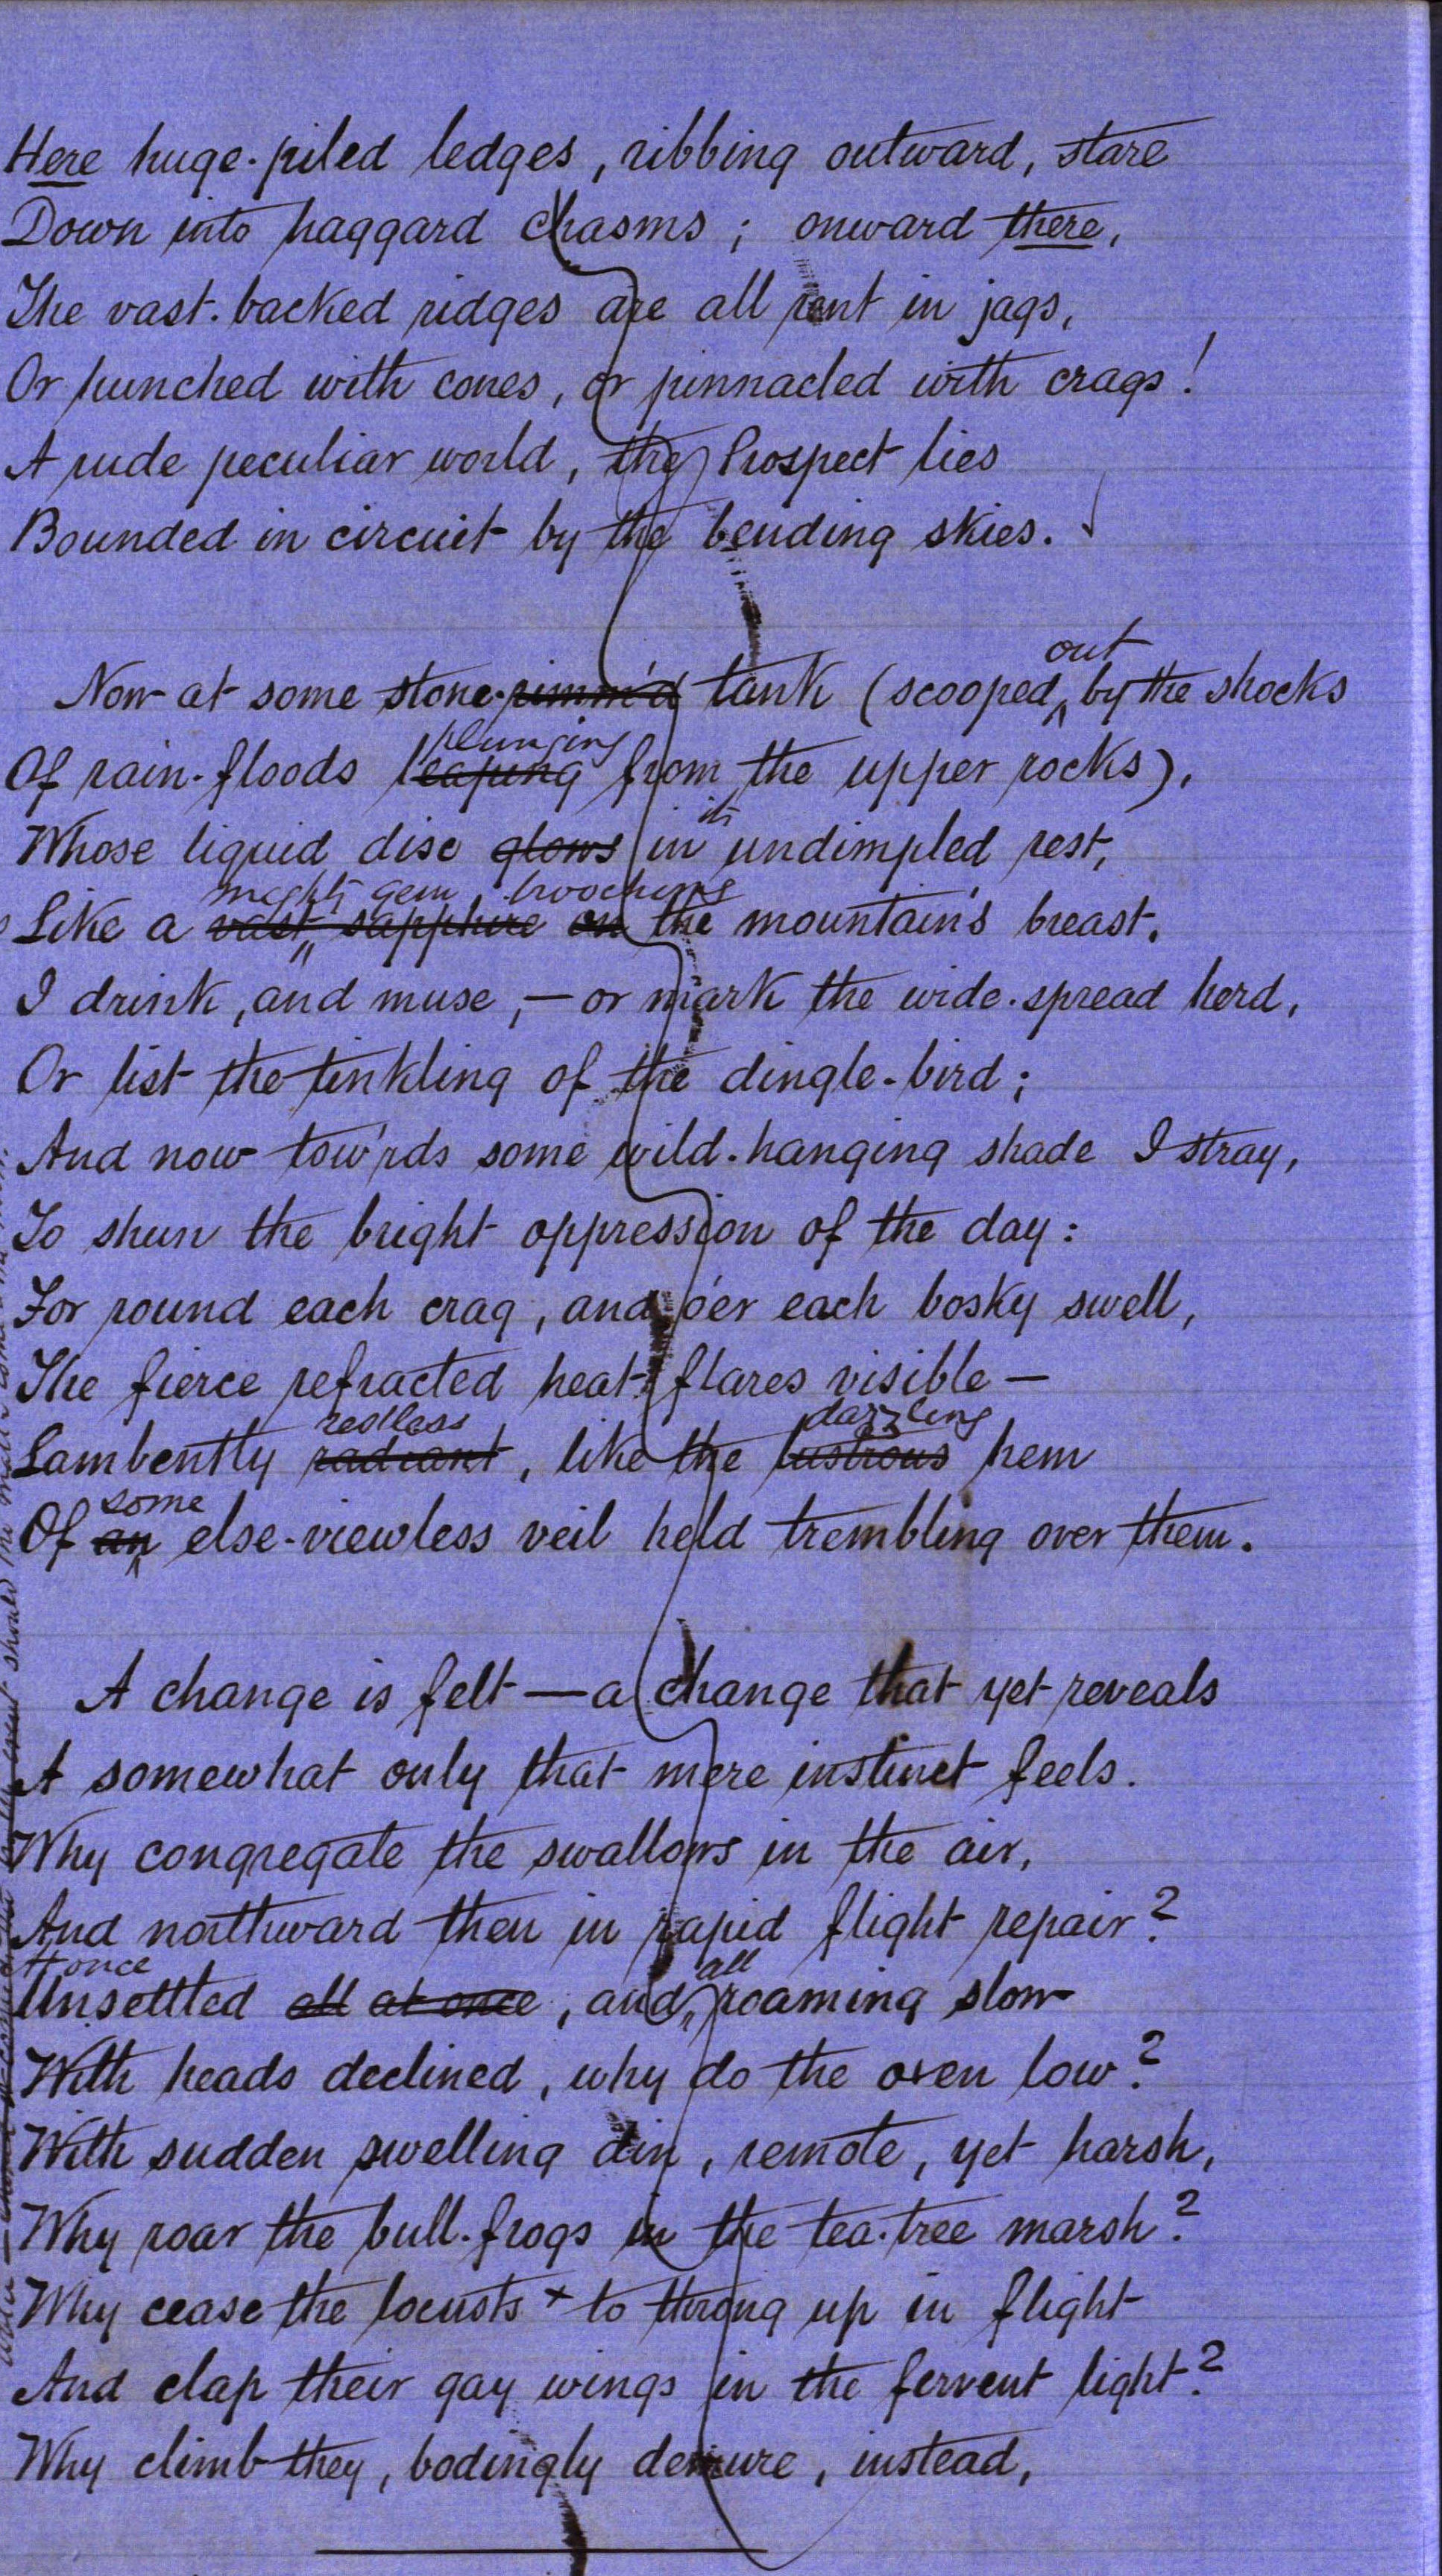 Here huge-piled ledges, ribbing outward, stare
Down into haggard chasms; onward there,
The vast-backed ridges are all rent in jags,
Or hunched with cones, or pinnacled with crags!
A rude peculiar world, the Prospect lies
Bounded in circuit by the bending skies.
out
Now at some stone-rimm'd tank (scooped by the shocks
plunging
Of rain-floods leaping from the upper rocks),
its
Whose liquid disc glows in undimpled rest,
mighty gem, brooching
Like a vast sapphire on the mountain's breast,
I drink, and muse, — or mark the wide-spread herd,
Or list the tinkling of the dingle-bird;
And now tow'rds some wild-hanging shade I stray,
To shun the bright oppression of the day:
For round each crag, and o'er each bosky swell,
The fierce refracted heat flares visible —
restless dazzling
Lambently radiant, like the lustrous hem
some
Of an else-viewless veil held trembling over them.
A change is felt — a change that yet reveals
A somewhat only that mere instinct feels.
Why congregate the swallows in the air,
And northward then in rapid flight repair?
At once all
Unsettled all at once, and roaming slow
With heads declined, why do the oxen low?
With sudden swelling din, remote, yet harsh,
Why roar the bull-frogs in the tea-tree marsh?
Why cease the locusts + to throng up in flight
And clap their gay wings in the fervent light?
Why climb they, bodingly demure, instead,